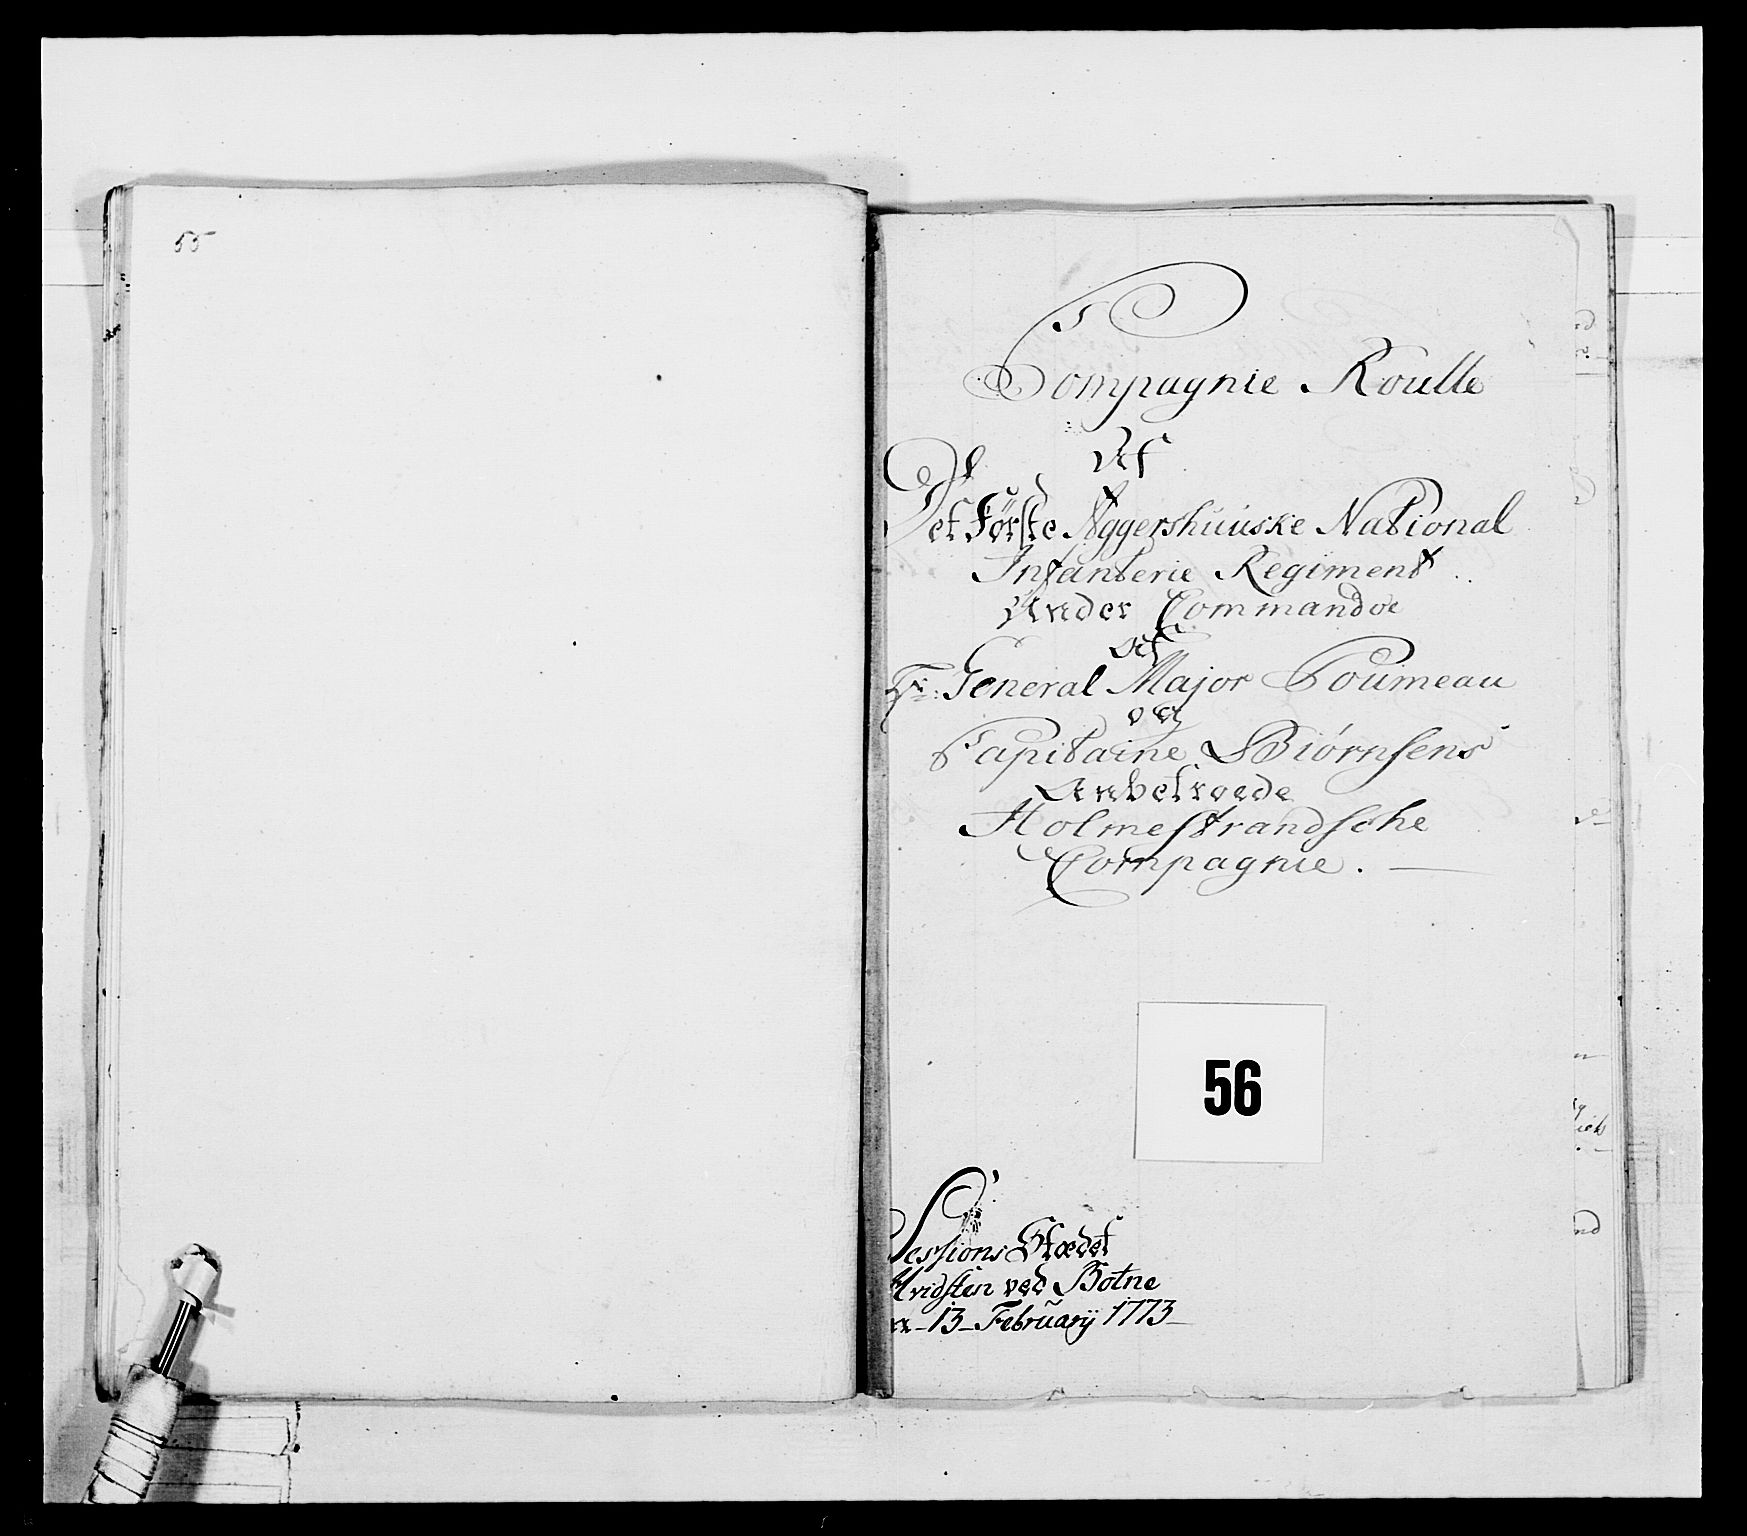 55
Compagnie Roulle
Af
Det Første Aggershuuske National
Infanterie Regiment
Under Commandoe
af
Hr: General Major Poumeau
og
Capitaine Biørnsens
Anbetroede
Holmestrandsche
Compagnie.
56
Sessions Stædet
Hvidsten ved Botne
13 Februarij 1773